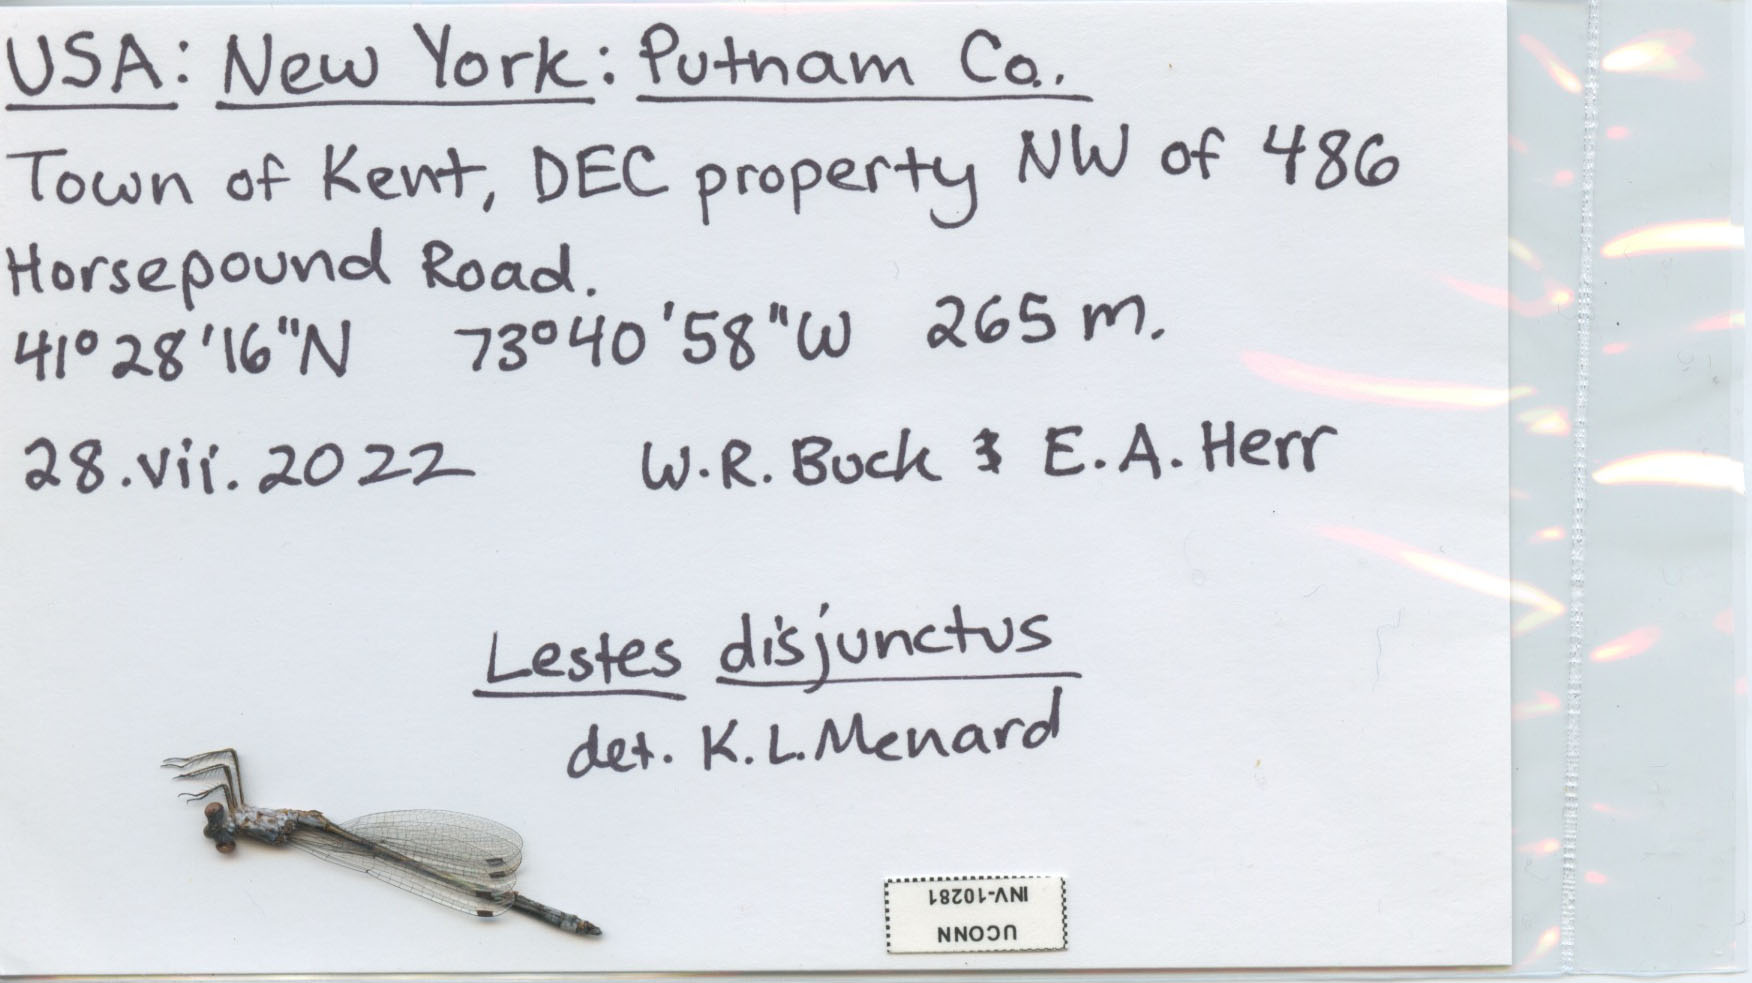 USA: New York: Putnam Co.
Town of Kent, DEC property NW of 486
Horsepound Road.
41° 28' 16" N 73° 40' 58" W 265 m.
28.vii.2022 W.R. Buck & E.A. Herr
Lestes disjunctus
det. K.L. Menard
UCONN
INV-10281